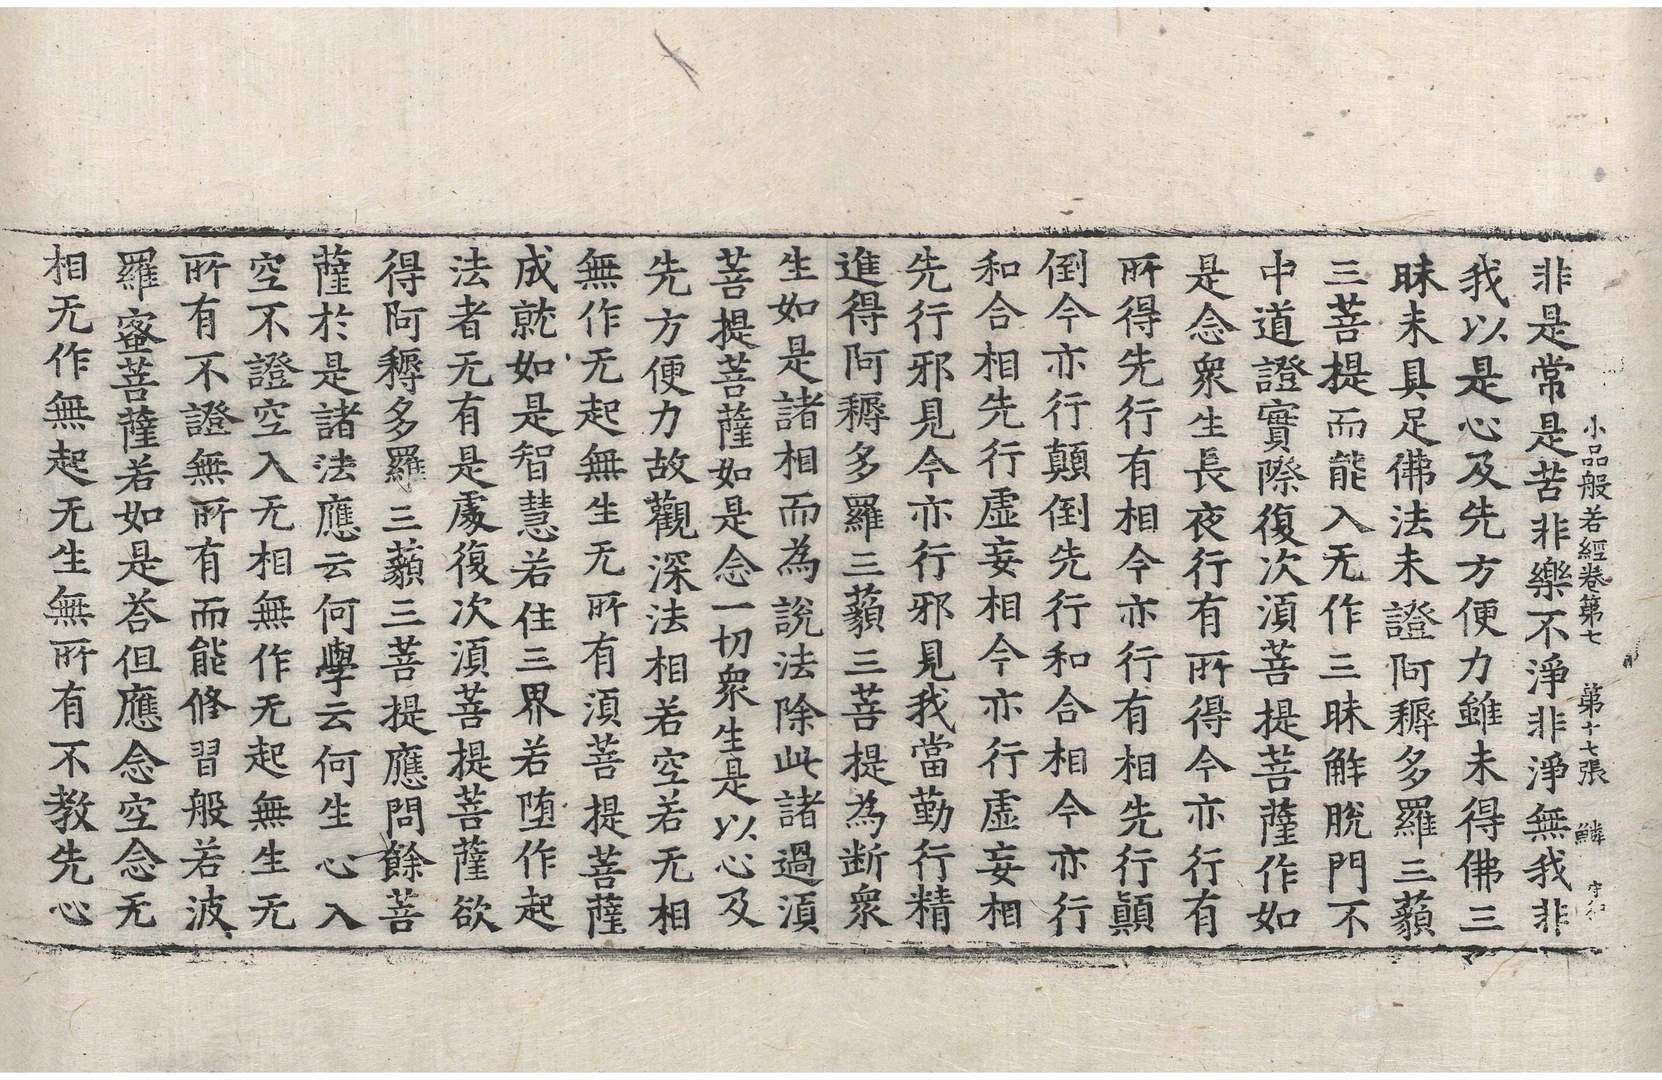 小品般若經卷第七 第十七張 鱗
非是常是苦非樂不淨非淨無我非
我以是心及先方便力雖未得佛三
昧未具足佛法未證阿耨多羅三藐
三菩提而能入无作三昧解脫門不
中道證實際復次湏菩提菩薩作如
是念衆生長夜行有所得今亦行有
所得先行有相今亦行有相先行顚
倒今亦行顚倒先行和合相今亦行
和合相先行虛妄相今亦行虛妄相
先行邪見今亦行邪見我當勤行精
進得阿耨多羅三藐三菩提為斷衆
生如是諸相而為說法除此諸過湏
菩提菩薩如是念一切衆生是以心及
先方便力故觀深法相若空若无相
無作无起無生无所有湏菩提菩薩
成就如是智慧若住三界若墮作起
法者无有是處復次湏菩提菩薩欲
得阿耨多羅三藐三菩提應問餘菩
薩於是諸法應云何學云何生心入
空不證空入无相無作无起無生无
所有不證無所有而能修習般若波
羅蜜菩薩若如是荅但應念空念无
相无作無起无生無所有不教先心